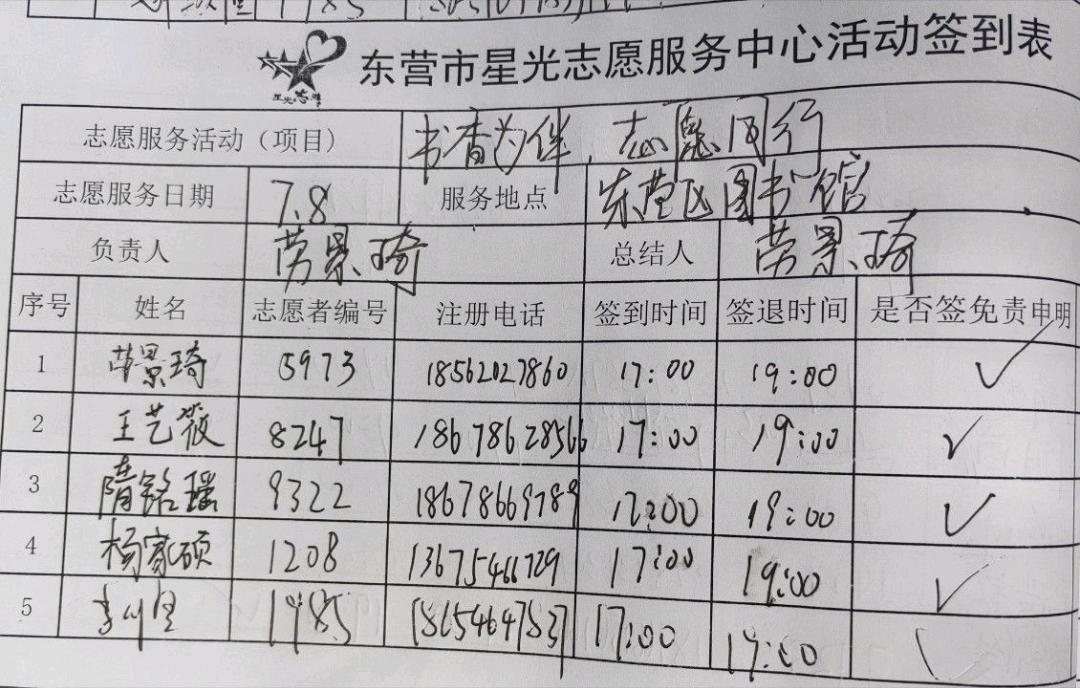 东营市星光志愿服务中心活动签到表
星光志愿
志愿服务活动（项目） 书香为伴，志愿同行
志愿服务日期 7.8 服务地点 东营区图书馆
负责人 劳景琦 总结人 劳景琦
序号 姓名 志愿者编号 注册电话 签到时间 签退时间 是否签免责申明
1 劳景琦 5973 18562027860 17:00 19:00 ✓
2 王艺筱 8247 18678628566 17:00 19:00 ✓
3 隋铭瑶 9322 18678669789 17:00 19:00 ✓
4 杨家硕 1208 13675466729 17:00 19:00 ✓
5 1985 18654647837 17:00 19:00 ✓